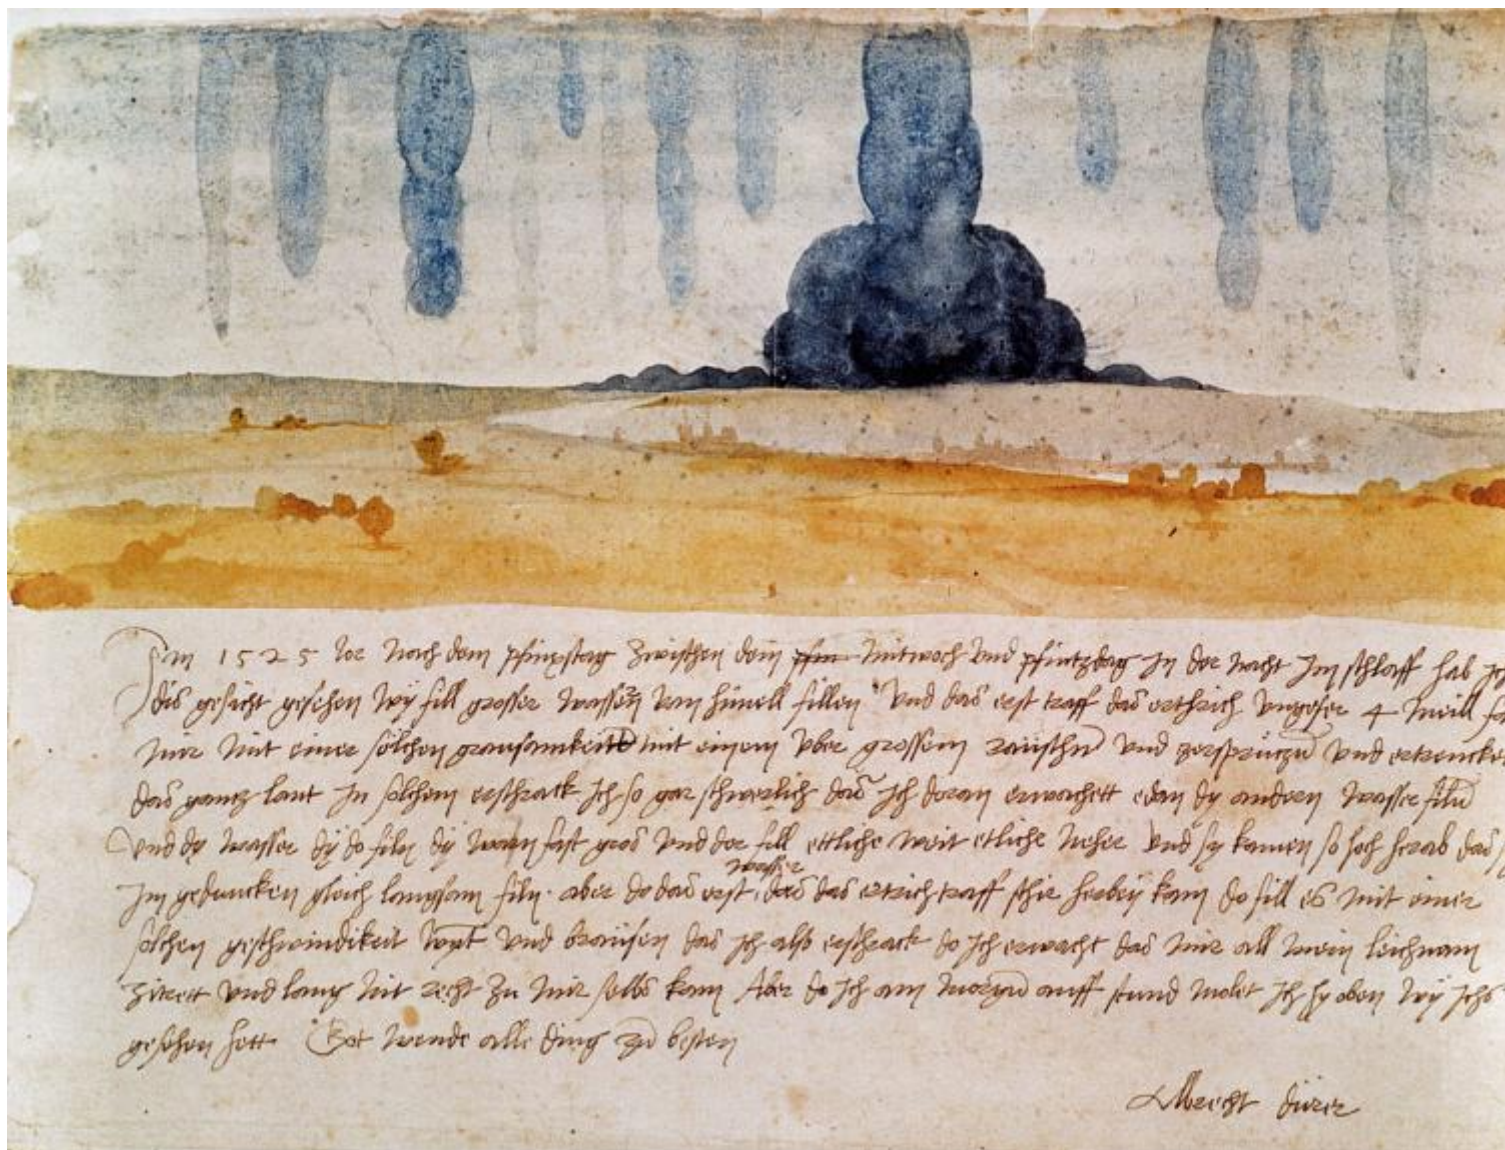 Im 1525 Jor nach dem pfinxstag zwischen dem pfin mitwoch und pfintzdag in der nacht im schlaff hab ich
dis gesicht gesehen wy fill grosser wassern vom himell fillen Und das erst traff das erthrich ungefer 4 meill fa
mir mit einer solchen grausamkeitt mit einem uber grossem raüschn und zersprützn und ertrencke
das gantz lant In solchem erschrack ich so gar schwerlich das ich doran erwachett edan dy andern wasser filn
Und dy wasser dy do filn dy warn fast gros und der fill ettliche weit etliche neher und sy kamen so hoch herab das s
im gedancken gleich langsam filn. aber do das erst wasser das das ertrich traff schir herbey kam do fill es mit einer
solchen geschwindikeit wynt und braüsen das ich also erschrack do ich erwacht das mir all mein leichnam
zitrett und lang nit recht zu mir selbs kam Aber do ich am morgn auff stund molet ich hy oben wy ichs
gesehen hett Got wende alle ding zu besten
Albrecht dürer